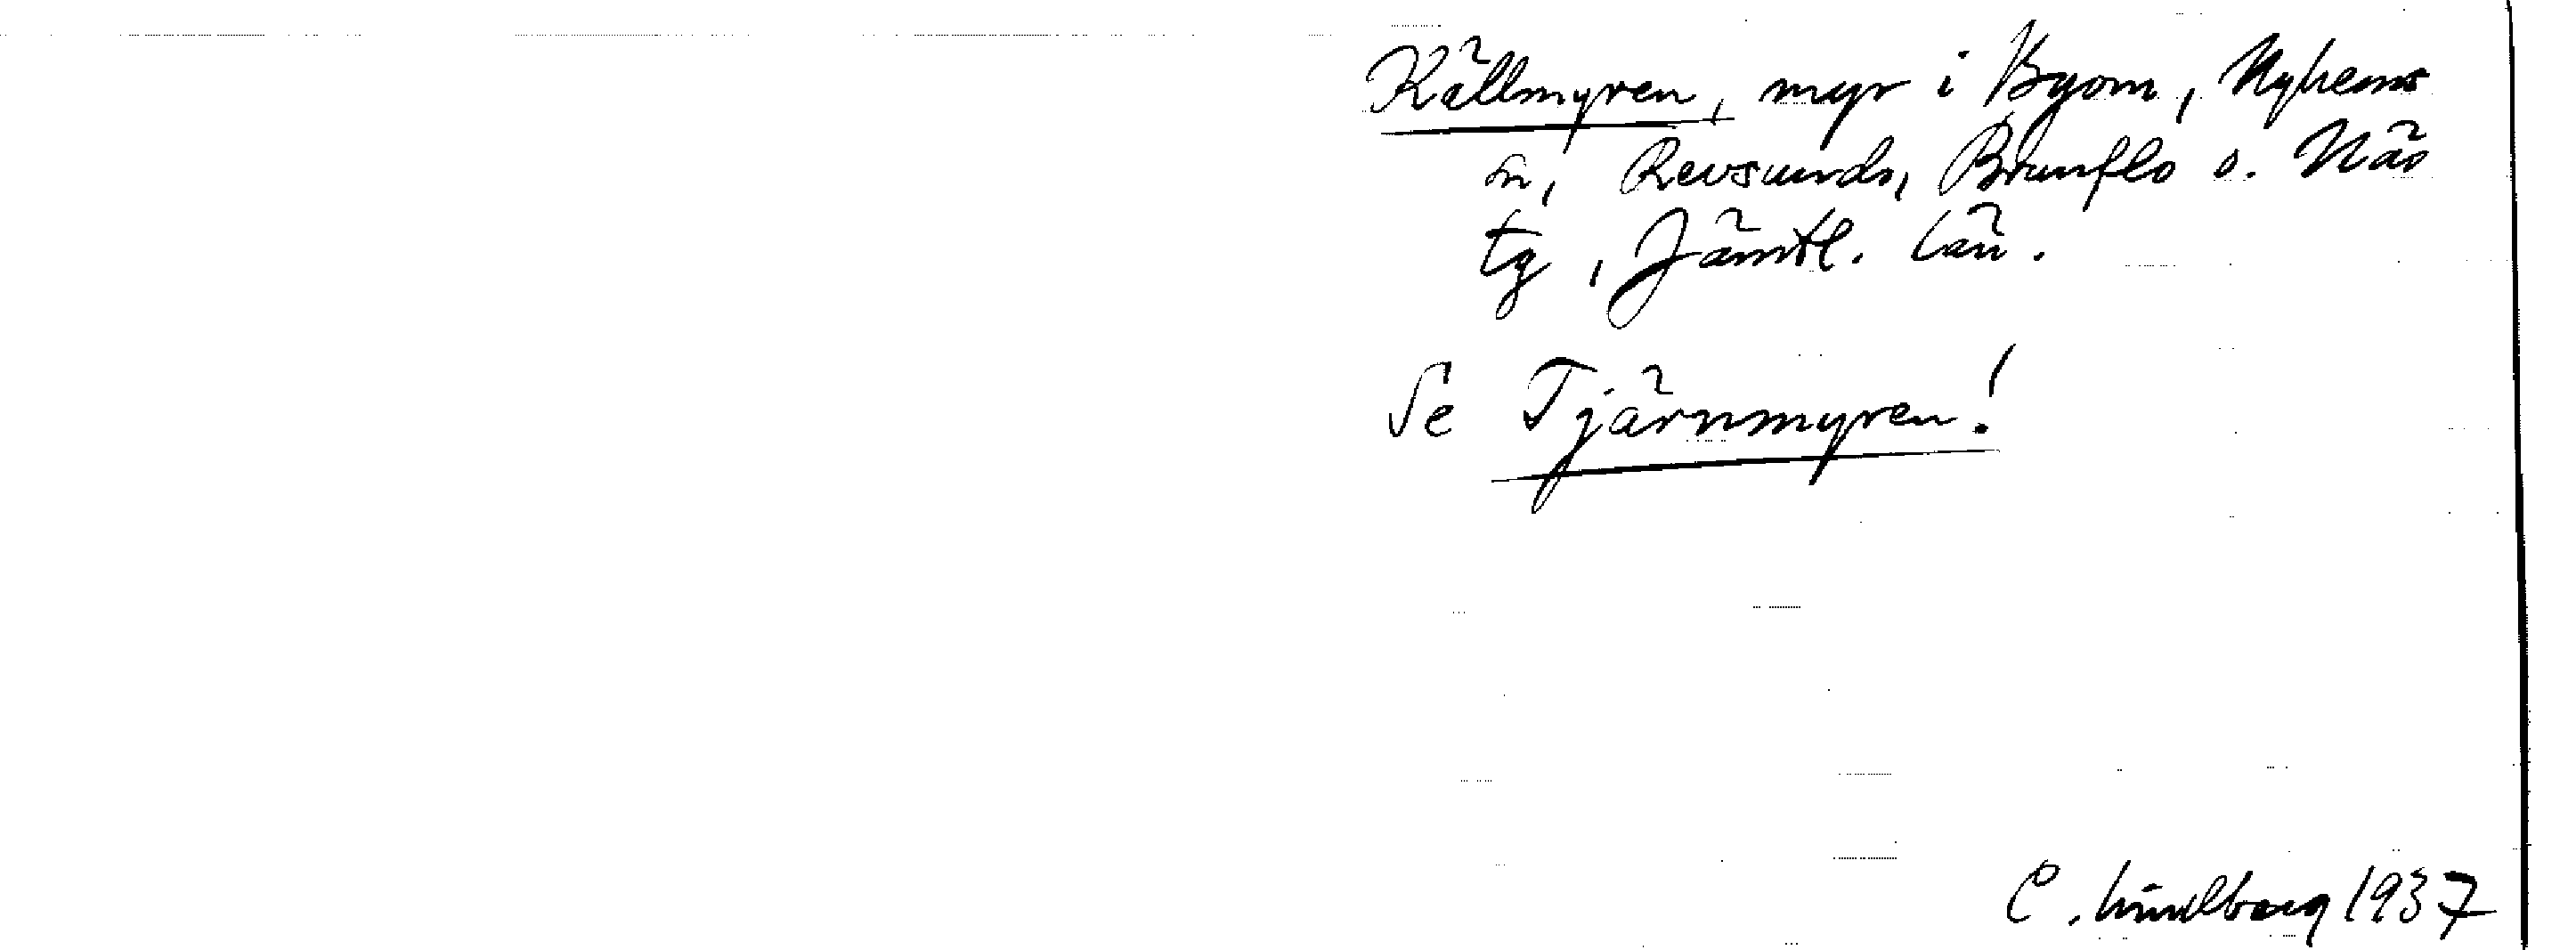 Källmyren, myr i Byom, Nyhems
sn, Revsunds, Brunflo o. Näs
tg, Jämtl. län.
Se Tjärnmyren!
C. Lindberg 1937